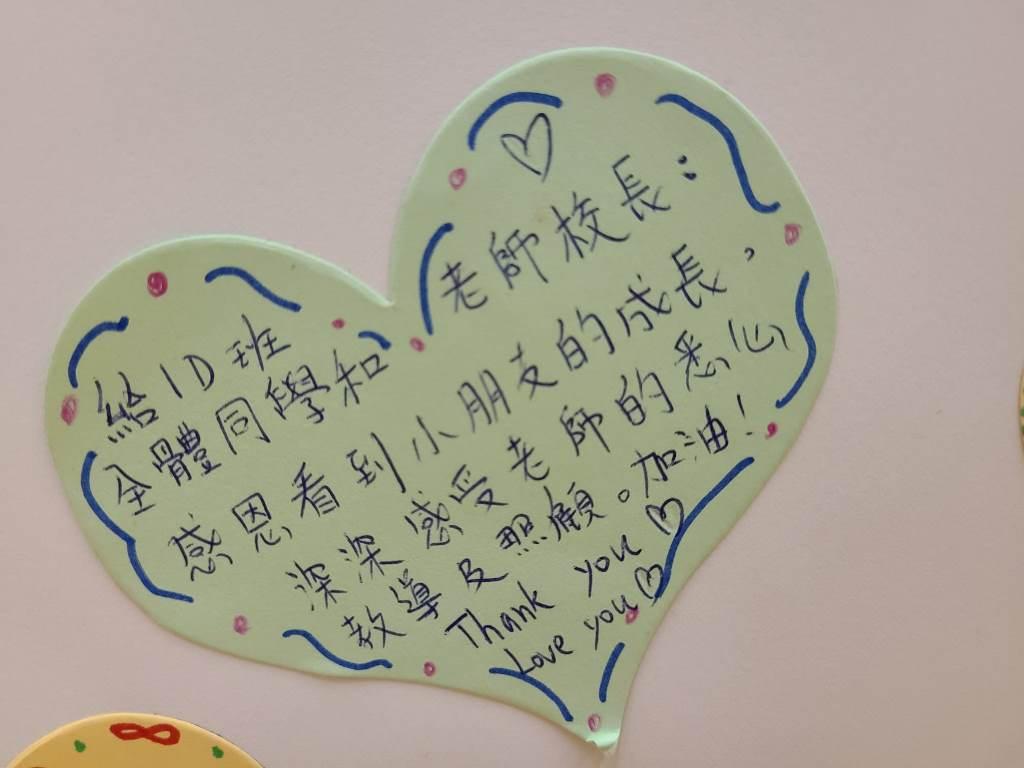 給1D班
全體同學和老師校長：
感恩看到小朋友的成長，
深深感受老師的悉心
教導及照顧。加油！
Thank you ♡
Love you ♡